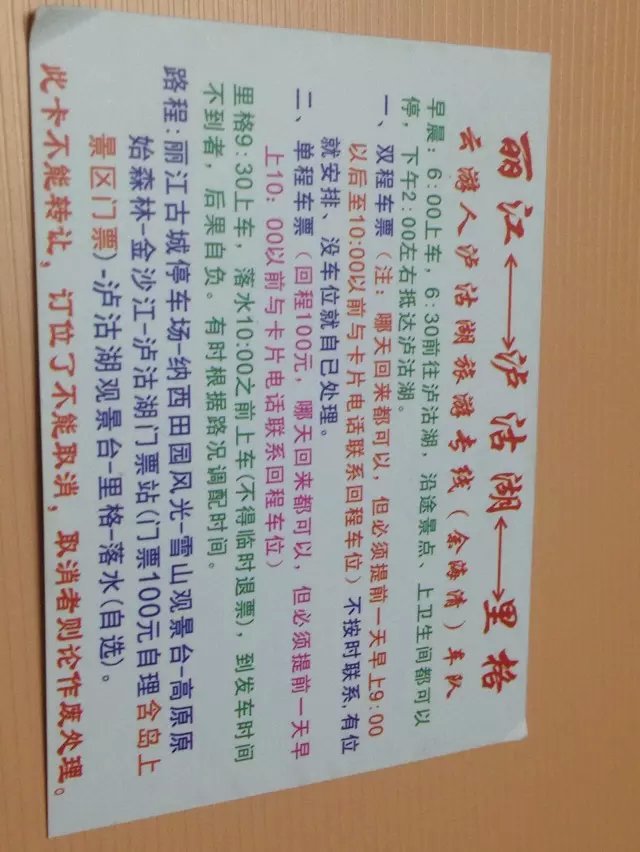 丽江←→泸沽湖←→里格
云游人泸沽湖旅游专线（余海清）车队
早晨：6:00上车，6:30前往泸沽湖，沿途景点、上卫生间都可以
停，下午2:00左右抵达泸沽湖。
一、双程车票（注：哪天回来都可以，但必须提前一天早上9:00
以后至10:00以前与卡片电话联系回程车位）不按时联系,有位
就安排、没车位就自已处理。
二、单程车票（回程100元，哪天回来都可以，但必须提前一天早
上10：00以前与卡片电话联系回程车位）
里格9:30上车，落水10:00之前上车(不得临时退票)，到发车时间
不到者，后果自负。有时根据路况调配时间。
路程:丽江古城停车场-纳西田园风光-雪山观景台-高原原
始森林-金沙江-泸沽湖门票站(门票100元自理含岛上
景区门票)-泸沽湖观景台-里格-落水(自选)。
此卡不能转让，订位了不能取消，取消者则论作废处理。